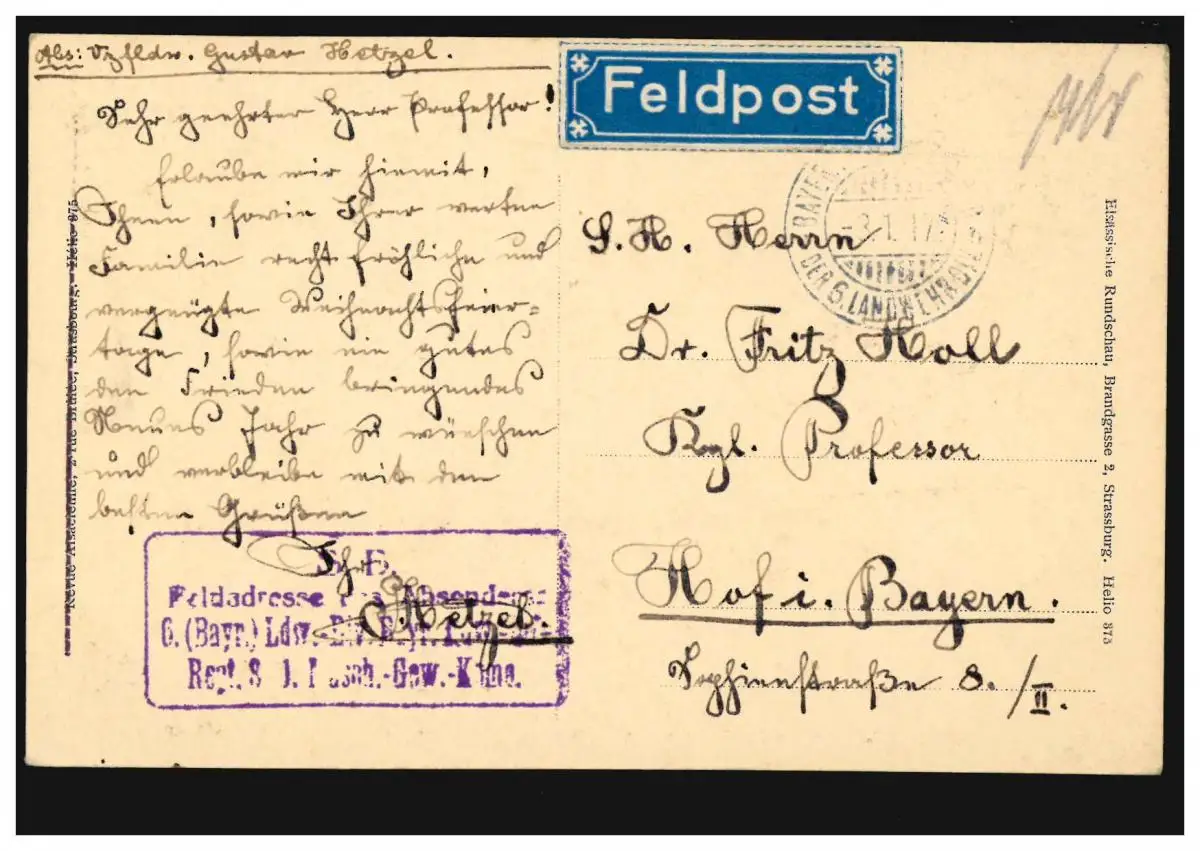 Abs: Vzfldw. Gustav Hetzel.
Sehr geehrter Herr Professor!
Erlaube mir hiemit,
Ihnen, sowie Ihrer werten
Familie recht fröhliche und
vergnügte Weihnachtsfeier-
tage, sowie ein gutes
den Frieden bringendes
Neues Jahr zu wünschen
und verbleibe mit den
besten Grüßen
Ihr
G. Hetzel
S. B.
Feldadresse des Absenders:
6. (Bayr.) Ldw.-Div. Bayr. Ldw.-Inf.-
Regt. 8 1. Masch.-Gew.-Komp.
Revue Alsacienne, 2 rue Brûlée, Strasbourg. - Hélio 875
Feldpost
BAYER.
-3.1.17
DER 6. LANDWEHR DIV.
S. H. Herrn
Dr. Fritz Koll
Kgl. Professor
Hof i. Bayern.
Sophienstraße 8./II.
Elsässische Rundschau, Brandgasse 2, Strassburg. Helio 875